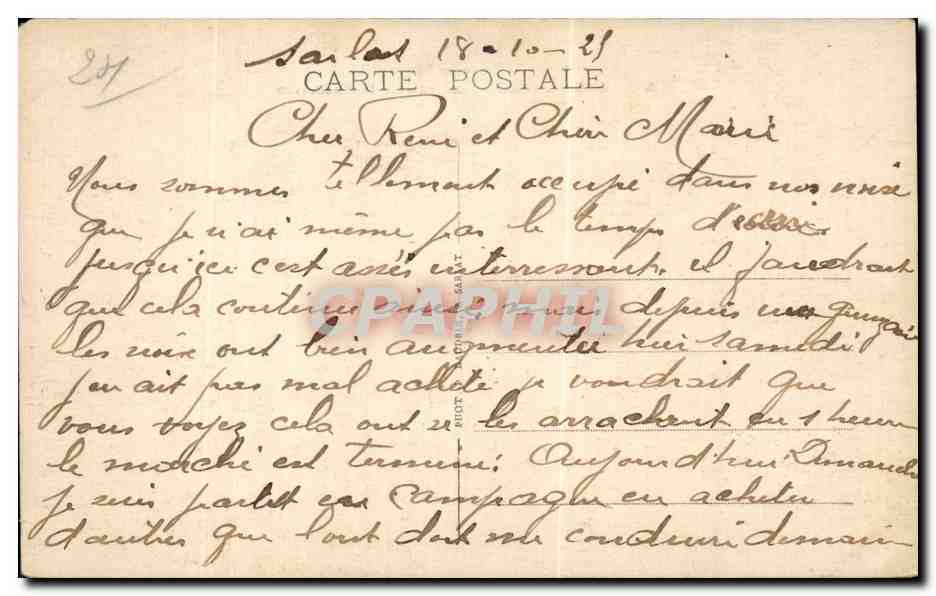 Sarlat 18-10-25
201
CARTE POSTALE
Cher René et Chère Marie
Nous sommes tellement occupé dans nos noix
que je n'ai même pas le temps d'
jusqu'ici c'est assés interressant, il faudrait
que cela continue ainsi, mais depuis une quinzaine
les noix ont bien augmenter hier samedi
j'en ait pas mal acheté je voudrait que
vous voyez cela ont se les arrachent en 1 heure
le marché est terminé. Aujourd'hui Dimanche
je suis partit en campagne en acheter
d'autres que l'ont doit me conduire demain
CPAPHIL
PHOT SARLAT